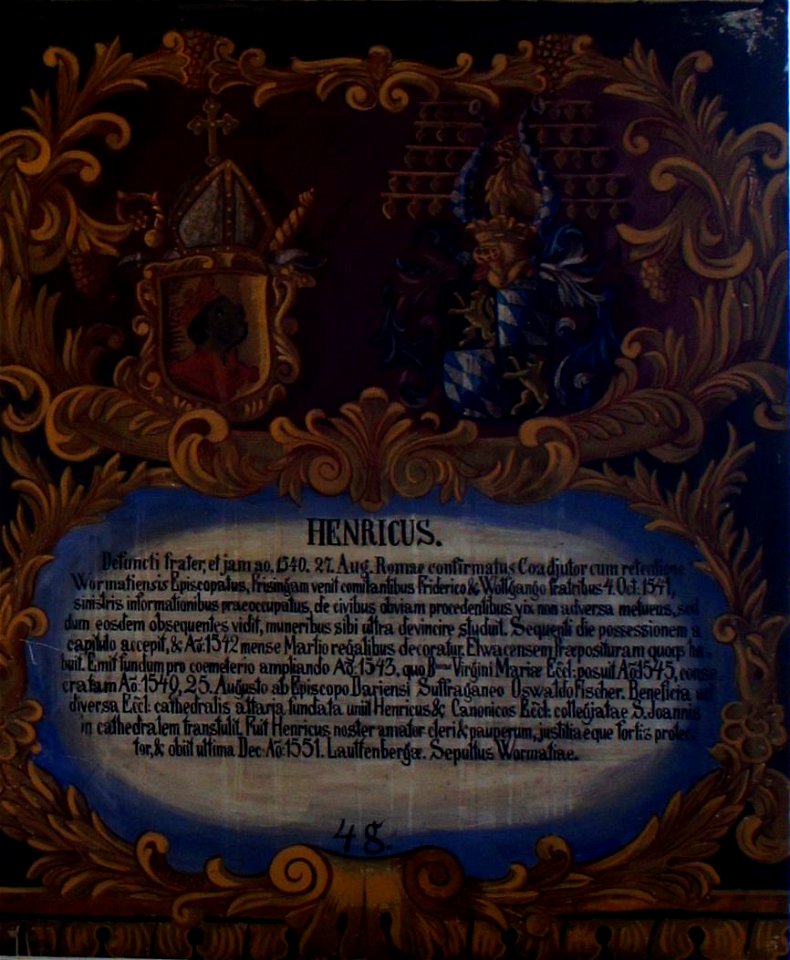 HENRICUS.
Defuncti frater, et jam ao. 1540. 27. Aug. Romae confirmatus Coadjutor cum retentione
Wormatiensis Episcopatus, Frisingam venit comitantibus Friderico & Wolfgango fratribus 4. Oct: 1541,
sinistris informationibus praeoccupatus, de civibus obviam procedentibus vix non adversa metuens, sed
dum eosdem obsequentes vidit, muneribus sibi ultra devincire studuit. Sequenti die possessionem a
capitulo accepit, & Ao: 1542 mense Martio regalibus decoratur. Elwacensem Praeposituram quoqs ha-
buit. Emit fundum pro coemeterio ampliando Ao: 1543, quo Virgini Mariae Eccl: posuit Ao: 1545, conse-
cratam Ao: 1549, 25. Augusto ab Episcopo Dariensi Suffraganeo Oswaldo Fischer. Beneficia ad
diversa Eccl: cathedralis altaria fundata univit Henricus & Canonicos Eccl: collegiatae S. Joannis
in cathedralem transtulit. Fuit Henricus noster amator cleri & pauperum, justitiaeque fortis protec-
tor, & obiit ultima Dec: Ao: 1551. Lauffenbergae. Sepultus Wormatiae.
48.